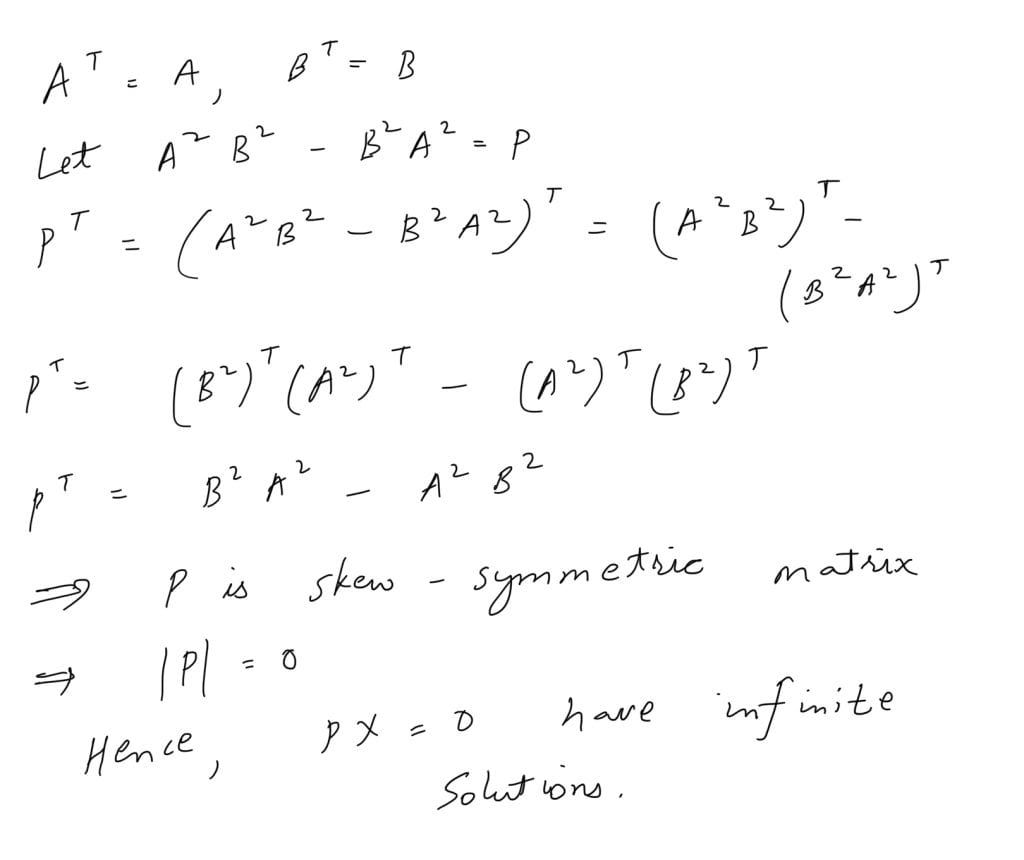 Aᵀ = A, Bᵀ = B
Let A² B² - B² A² = P
Pᵀ = (A² B² - B² A²)ᵀ = (A² B²)ᵀ -
(B² A²)ᵀ
Pᵀ = (B²)ᵀ (A²)ᵀ - (A²)ᵀ (B²)ᵀ
Pᵀ = B² A² - A² B²
⇒ P is skew - symmetric matrix
⇒ |P| = 0
Hence, PX = 0 have infinite
Solutions.